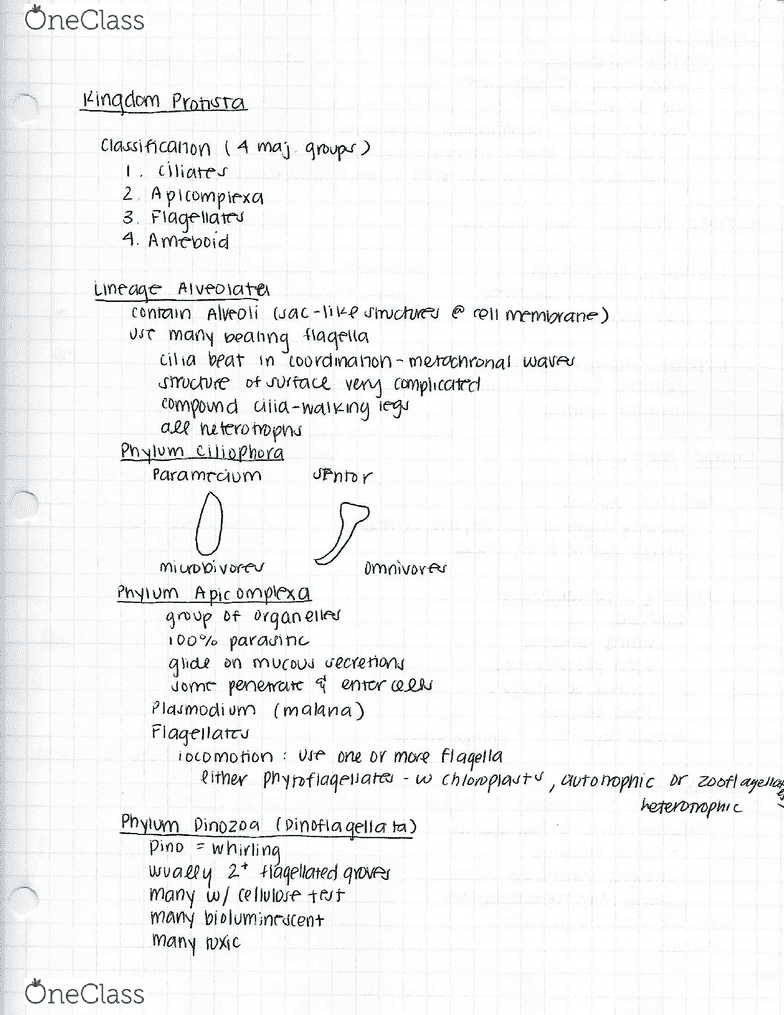 OneClass
Kingdom Protista
Classification (4 maj. groups)
1. Ciliates
2. Apicomplexa
3. Flagellates
4. Ameboid
Lineage Alveolata
contain Alveoli (sac-like structures @ cell membrane)
use many beating flagella
cilia beat in coordination - metachronal waves
structure of surface very complicated
compound cilia-walking legs
all heterotrophs
Phylum Ciliophora
Paramecium Stentor
microbivores omnivores
Phylum Apicomplexa
group of organelles
100% parasitic
glide on mucous secretions
some penetrate & enter cells
Plasmodium (malaria)
Flagellates
locomotion: use one or more flagella
either phytoflagellates - w chloroplasts, autotrophic or zooflagellates
heterotrophic
Phylum Dinozoa (Dinoflagellata)
Dino = whirling
usually 2+ flagellated groves
many w/ cellulose test
many bioluminescent
many toxic
OneClass